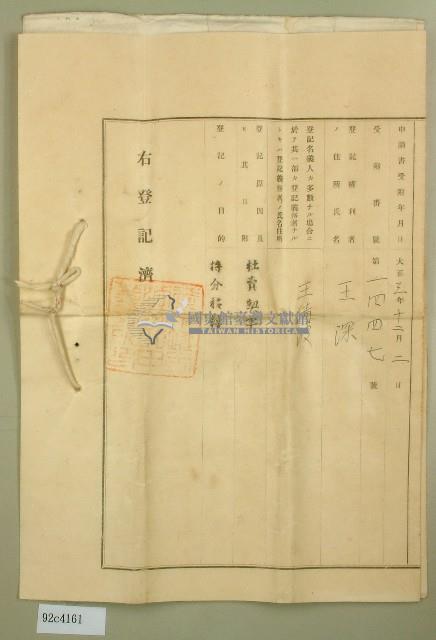 申請書受附年月日 大正三年十二月二日
受附番號 第一四四七號
登記權利者
ノ住所氏名
王深
登記名義人カ多數ナル場合ニ
於テ其一部カ登記義務者ナル
トキハ登記義務者ノ氏名住所
登記原因及
ヒ其日附
杜賣契字
登記ノ目的
持分移轉
右登記濟
國史館臺灣文獻館
TAIWAN HISTORICA
92c4161